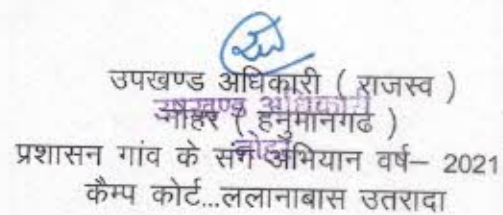 उपखण्ड अधिकारी ( राजस्व )
उपखण्ड अधिकारी
नोहर ( हनुमानगढ )
नोहर
प्रशासन गांव के संग अभियान वर्ष– 2021
कैम्प कोर्ट...ललानाबास उतरादा